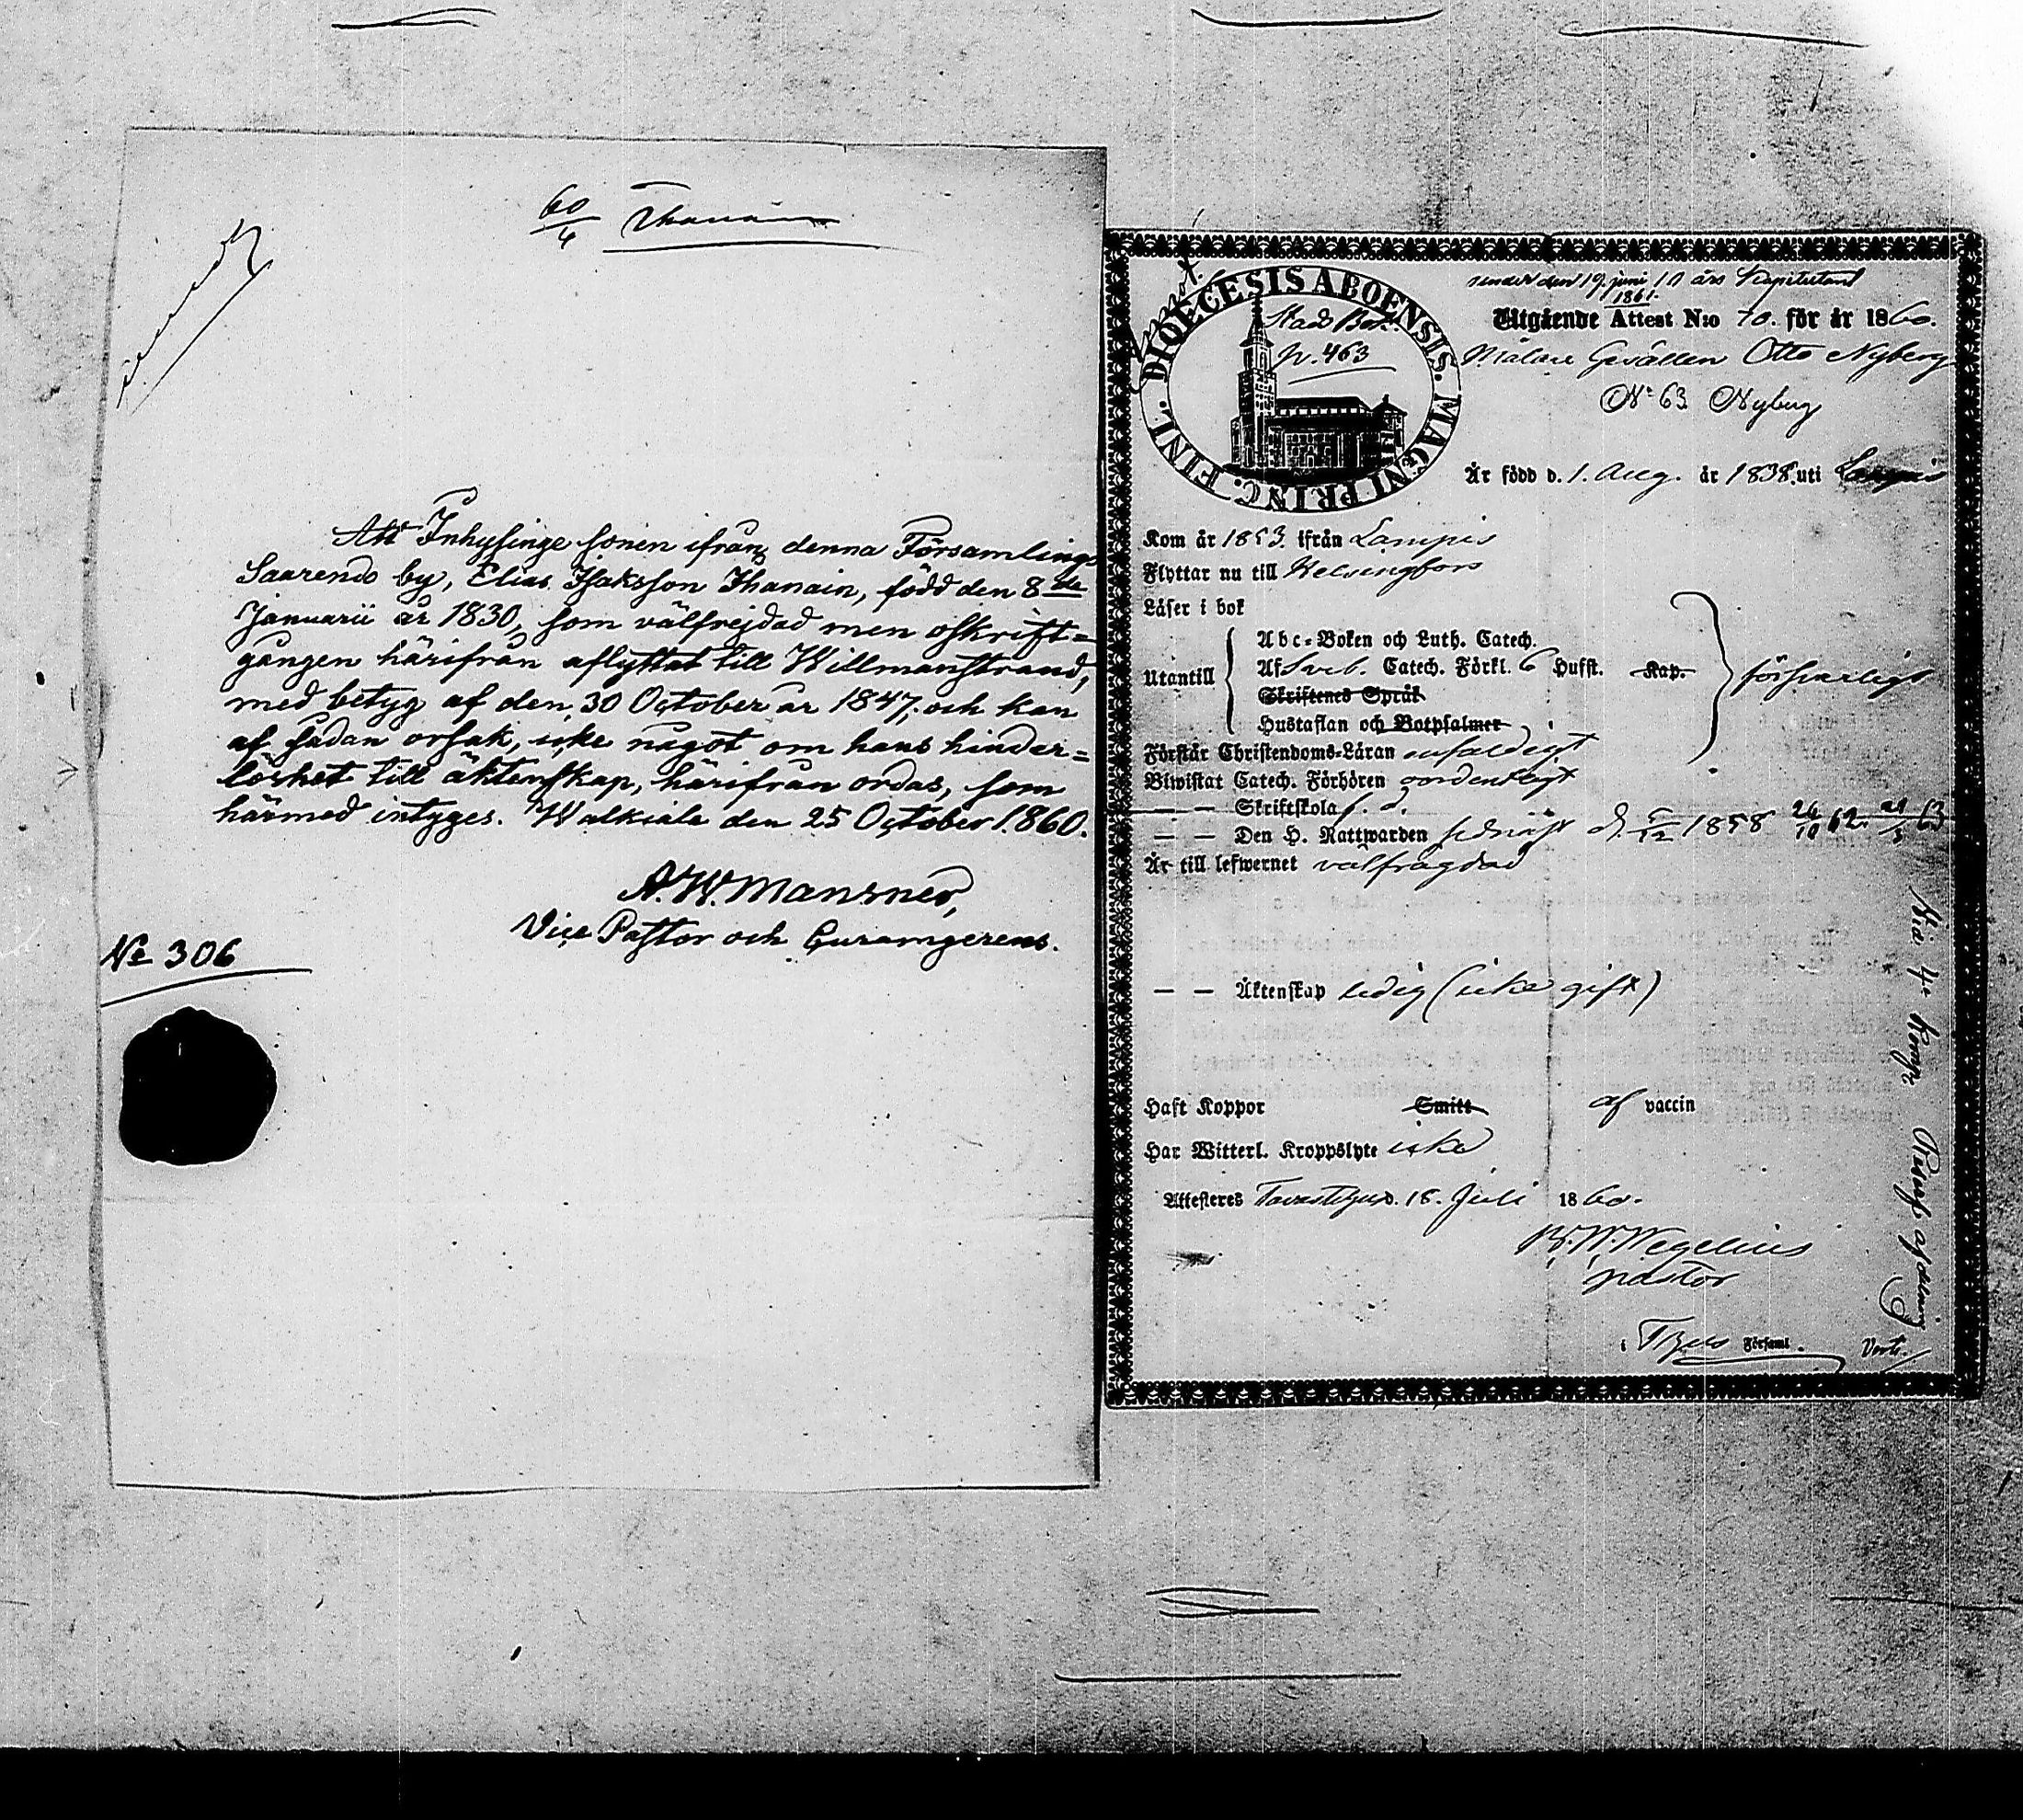 60/4 Ihanain
Att Inhysinge sonen ifrån denna Församlings
Saarendo by, Elias Isaksson Ihanain, född den 8de
Januarii år 1830, som välfrejdad men oskrift=
gången härifrån aflyttat till Willmanstrand,
med betyg af den 30 October år 1847, och kan
af sådan orsak, icke något om hans hinder=
löshet till äktenskap, härifrån ordas, som
härmed intyges. Walkiala den 25 October 1860.
A. W. Mansner,
Vice Pastor och Curamgerens.
No 306
DIOECESIS ABOENSIS. MAGNI PRINC. FINL.
N. 463
den 19 juni 10 års Kapitulant
1861.
Utgående Attest N:o 70. för år 1860.
Målare Gesällen Otto Nyberg
No 63 Nyberg
Är född d. 1. Aug. år 1838. uti Lampis
Kom år 1853. ifrån Lampis
Flyttar nu till Helsingfors
Läser i bok
Utantill
Abc-Boken och Luth. Catech.
Af Sveb. Catech. Förkl. 6 Hufst. Kap.
Skriftenes Språk
Hustaflan och Botpsalmer
försvarligt
Förstår Christendoms-Läran enfaldigt
Biwistat Catech. Förhören oordentligt
— — Skriftskola f. d.
— — Den H. Nattwarden sednast d. 5/12 1858 26/10 62. 21/3 63
Är till lefwernet välfrägdad
— — Äktenskap ledig (icke gift)
Haft Koppor Smitt af vaccin
Har Witterl. Kroppslyte icke
Attesteres Tavastehus d. 18. Juli 1860.
B. W. Wegelius
pastor
i Tbehus Församl.
Vert.
Vid 4e Komp. Reserf afdelning